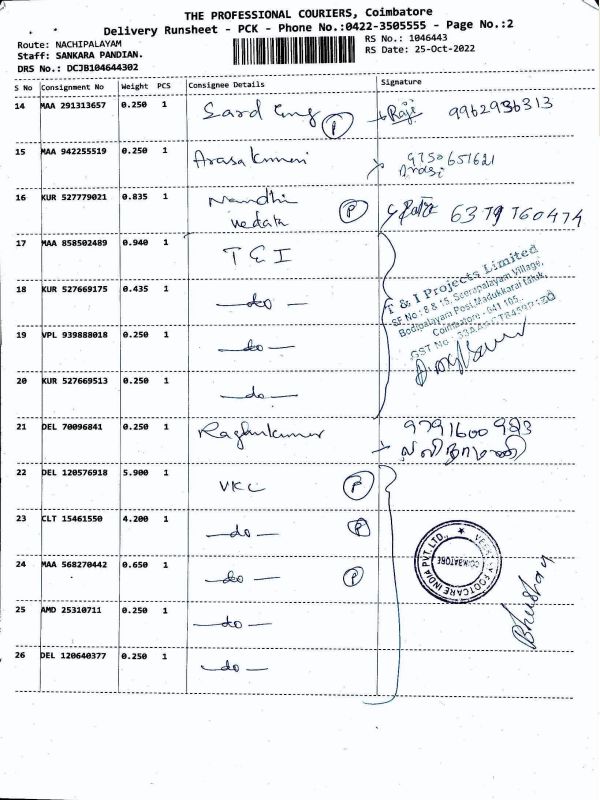 THE PROFESSIONAL COURIERS, Coimbatore
Delivery Runsheet - PCK - Phone No.:0422-3505555 - Page No.:2
Route: NACHIPALAYAM
Staff: SANKARA PANDIAN.
DRS No.: DCJB104644302
RS No.: 1046443
RS Date: 25-Oct-2022
S No Consignment No Weight PCS Consignee Details Signature
14 MAA 291313657 0.250 1 P Raji 9962936313
15 MAA 942255519 0.250 1 Arasakumari 9750651621
16 KUR 527779021 0.835 1 Nandhi P 6379760474
vedata
17 MAA 858502489 0.940 1 T & I
T & I Projects Limited
SF No : 8 & 15, Seerapalayam Village,
Bodipalayam Post, Madukkarai Taluk,
Coimbatore - 641 105.
GST No
18 KUR 527669175 0.435 1 —do—
19 VPL 939888018 0.250 1 —do—
20 KUR 527669513 0.250 1 —do—
21 DEL 70096841 0.250 1 Raghukumar 9791600983
22 DEL 120576918 5.900 1 VKC P
23 CLT 15461550 4.200 1 —do— P
24 MAA 568270442 0.650 1 —do— P
FOOTCARE INDIA PVT. LTD.
COIMBATORE
Bhushan
25 AMD 25310711 0.250 1 —do—
26 DEL 120640377 0.250 1 —do—